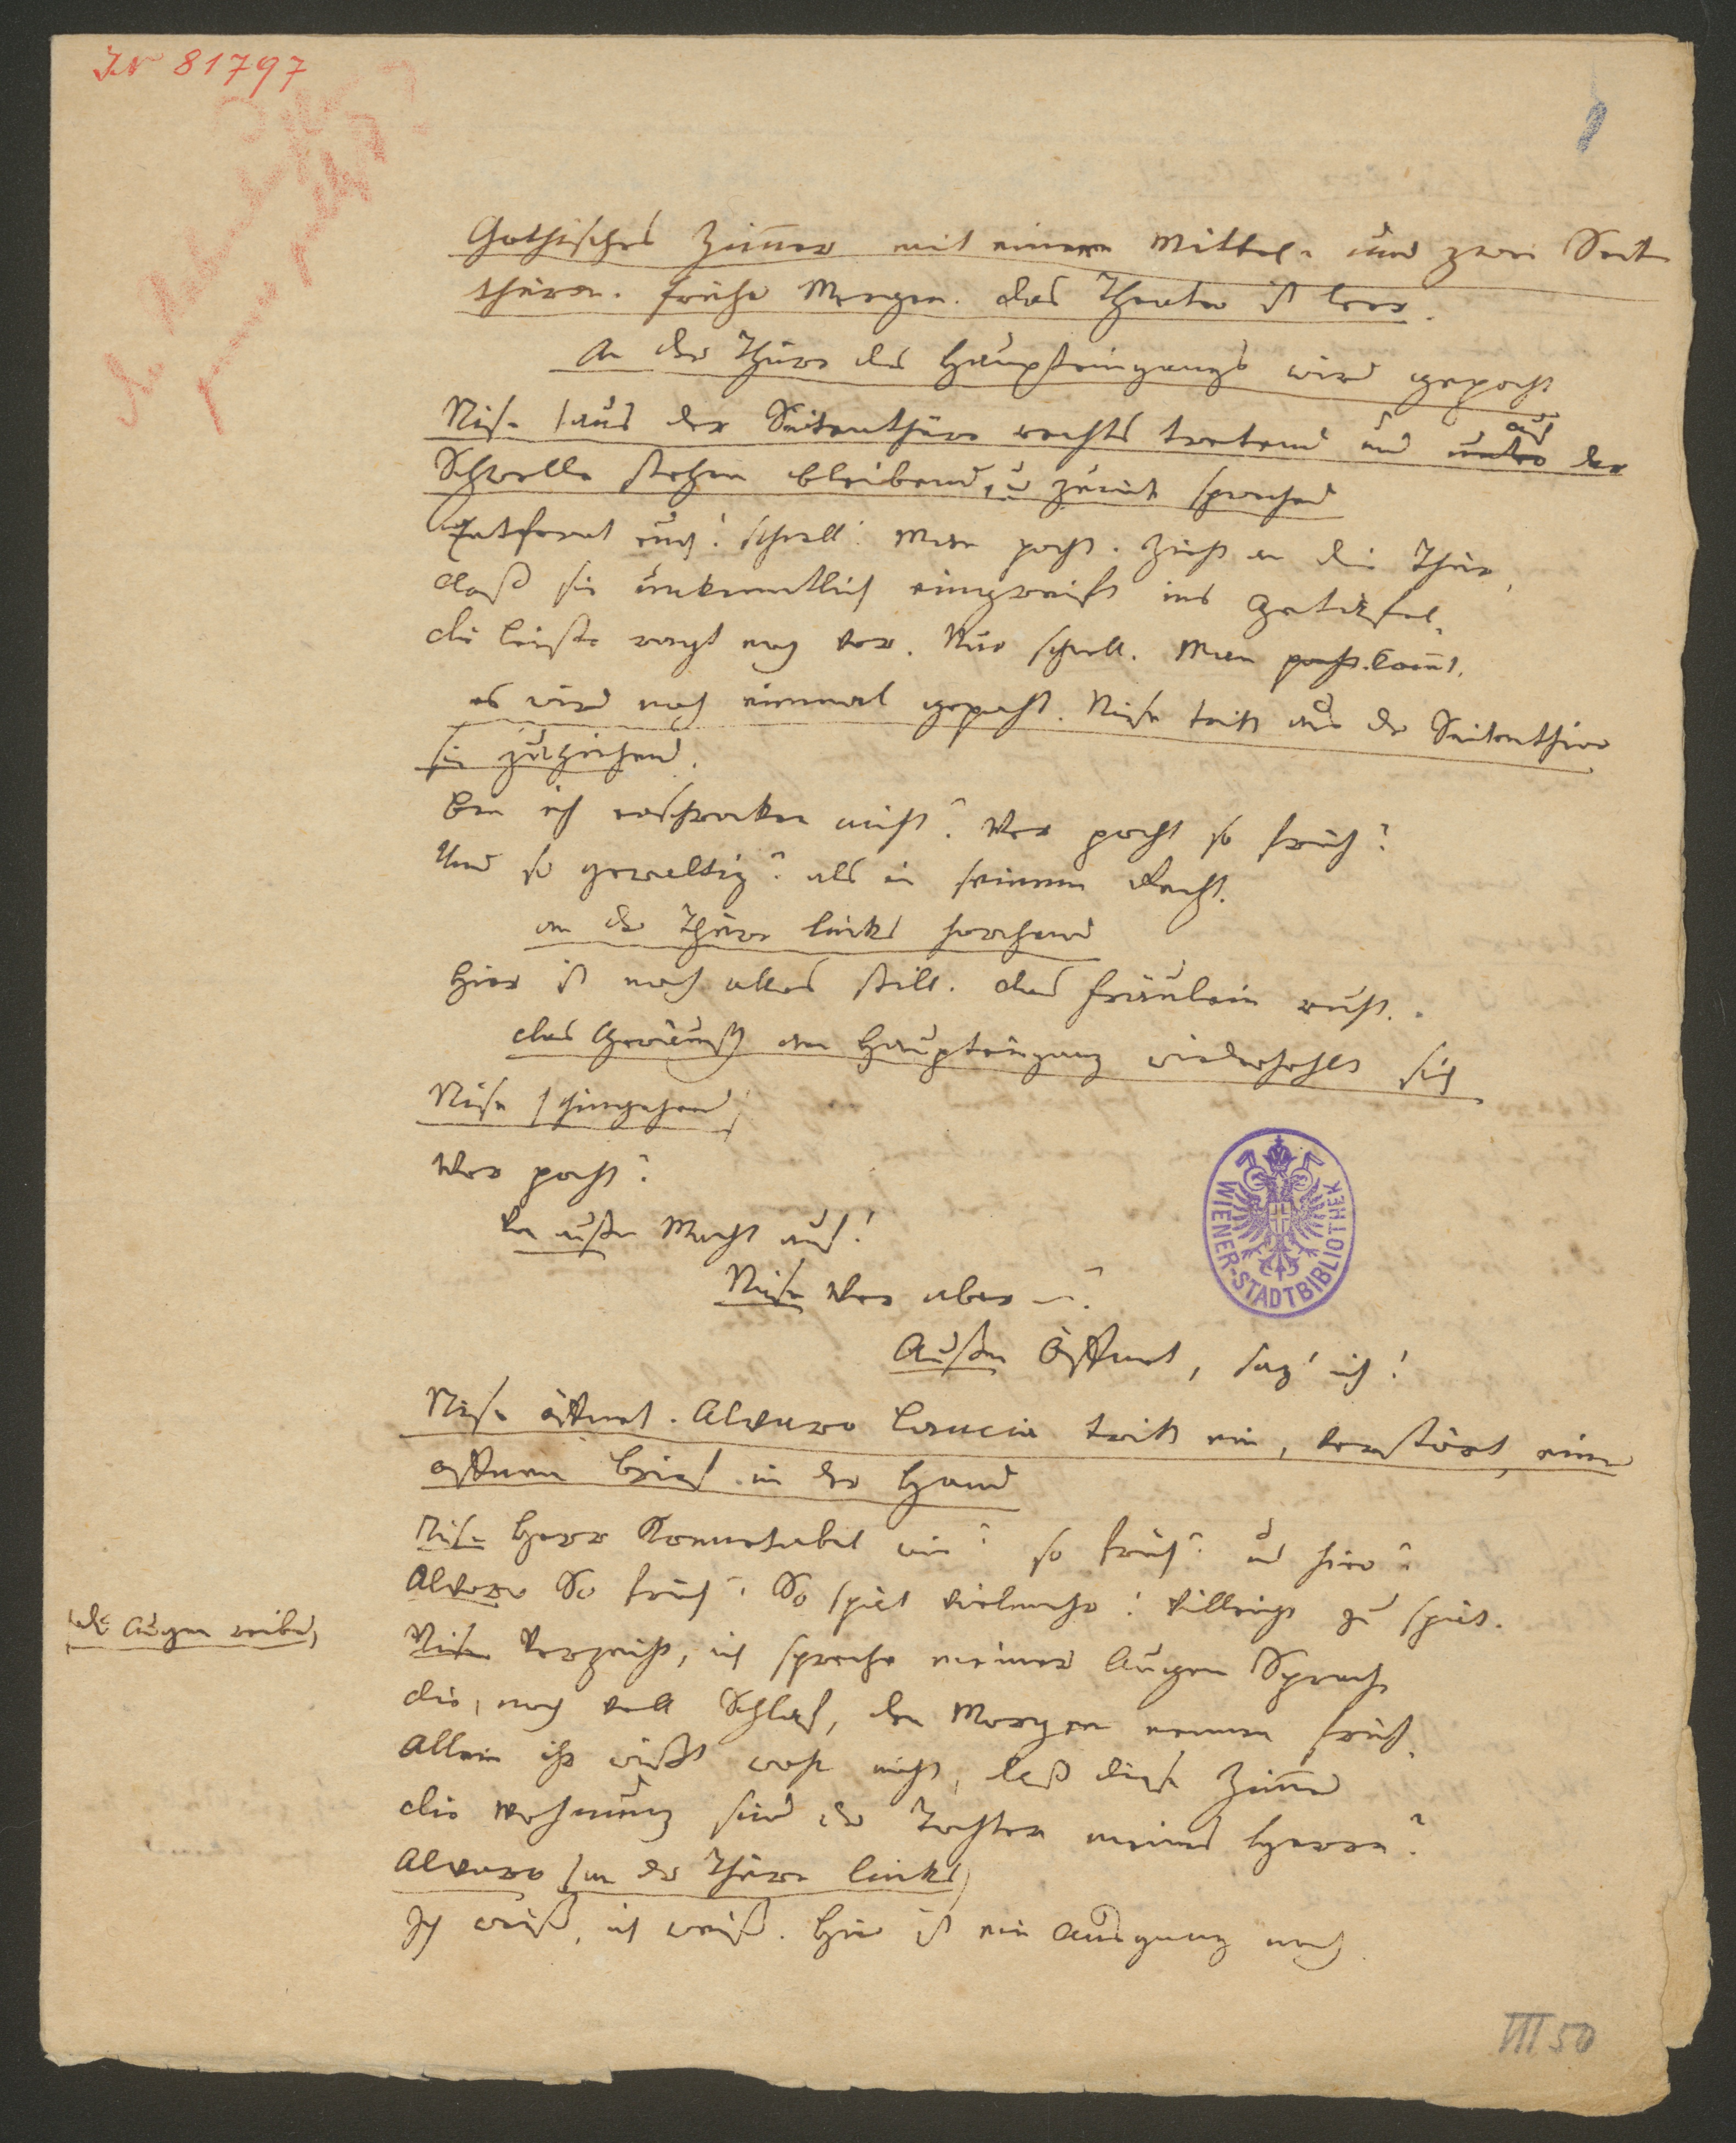 IN 81797
Gothisches Zimmer mit einer Mittel- und zwei Seit
thüren. Früher Morgen. Das Theater ist leer.
An der Thüre des Haupteingangs wird gepocht
Nise (aus der Seitenthüre rechts tretend und auf unter der
Schwelle stehen bleibend, u zurück sprechend
Entfernt euch! schnell! Man pocht. Zieht an die Thür,
daß sie unkenntlich eingreift ins Getäfel,
die Leiste ragt noch vor. Nur schnell. Man pocht. kommt.
es wird noch einmal gepocht. Nise tritt aus der Seitenthüre
sie zuziehend.
Bin ich erschrocken nicht? Wer pocht so früh?
Und so gewaltig? als in seinem Recht.
an der Thüre links horchend
Hier ist noch alles still. Das Fräulein ruht.
das Geräusch am Haupteingang wiederhohlt sich
Nise (hingehend)
Wer pocht?
Von außen Macht auf!
Nise Wer aber –?
Außen Öffnet, sag' ich!
Nise öffnet. Alvaro Garcia tritt ein, verstört, einen
offnen Brief in der Hand
Nise Herr Konnetabel wie? so früh? und hier?
Alvaro So früh? So spät vielmehr! Vielleicht zu spät.
(die Augen reibend)
Nise Verzeiht, ich spreche meiner Augen Sprache
die, noch voll Schlaf, den Morgen nennen früh.
Allein ihr wißt wohl nicht, daß diese Zimmer
die Wohnung sind der Tochter meines Herrn?
Alvaro (an der Thüre links)
Ich weiß, ich weiß. Hier ist ein Ausgang noch
WIENER-STADTBIBLIOTHEK
VIII 50